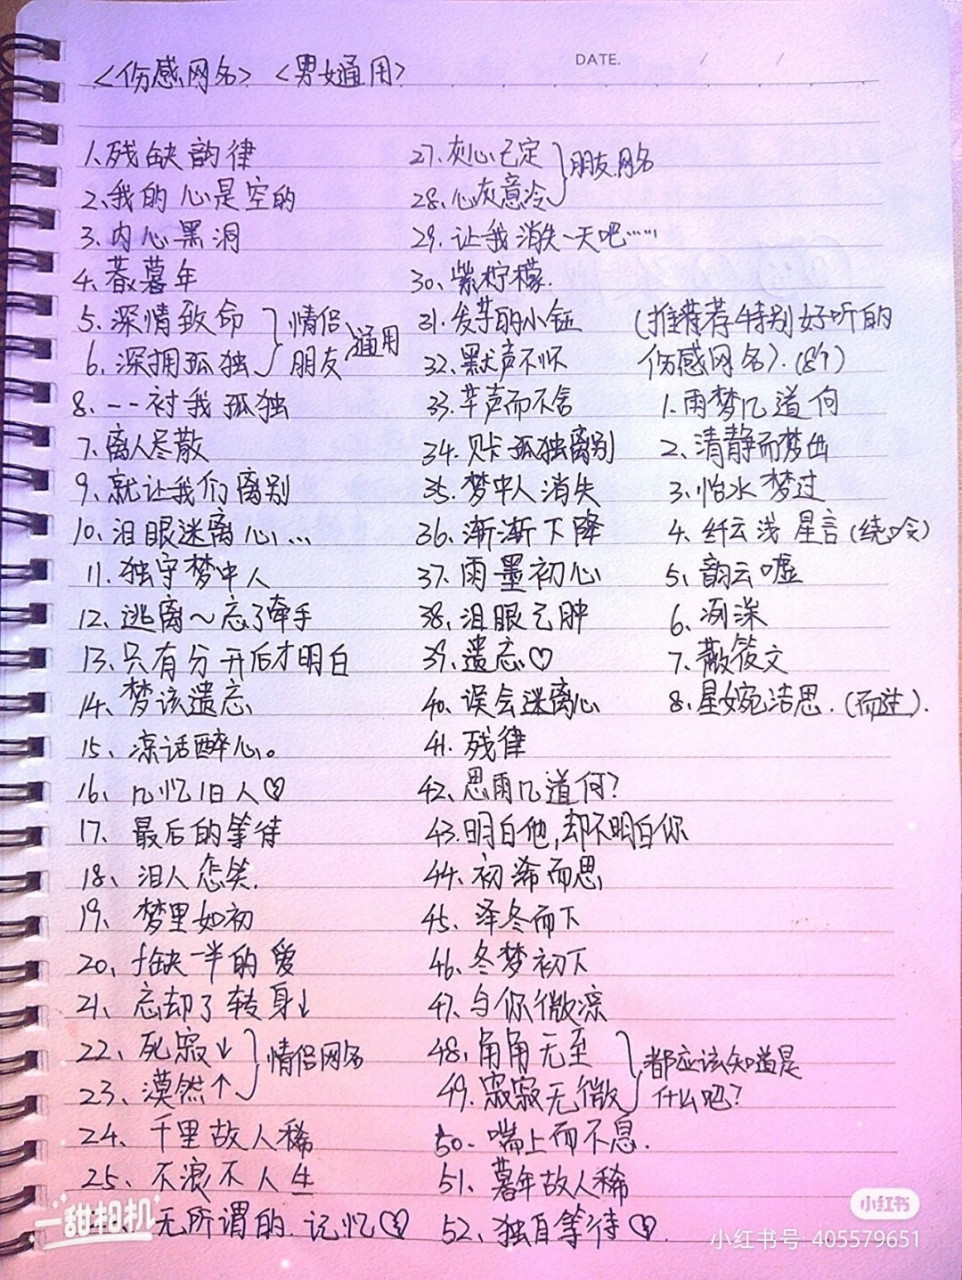 DATE. / /
<伤感网名> <男女通用>
1、残缺韵律
2、我的心是空的
3、内心黑洞
4、暮暮年
5、深情致命
6、深拥孤独
情侣
朋友
通用
8、一一衬我孤独
7、离人尽散
9、就让我们离别
10、泪眼迷离心...
11、独守梦中人
12、逃离~忘了牵手
13、只有分开后才明白
14、梦该遗忘
15、凉话醉心。
16、几忆旧人♡
17、最后的等待
18、泪人恋笑.
19、梦里如初
20、拾缺一半的爱
21、忘却了转身↓
22、死寂↓
23、漠然↑
情侣网名
24、千里故人稀
25、不浪不人生
无所谓的.记忆♡
27、灰心已定
28、心灰意冷
朋友网名
29、让我消失一天吧……
30、紫柠檬.
31、发芽的小钰
32、默声不怀
33、莘声而不言
34、贝卡孤独离别
35、梦中人消失
36、渐渐下降
37、雨墨初心
38、泪眼已肿
39、遗忘♡
40、误会迷离心
41、残律
42、思雨几道何?
43、明白他,却不明白你
44、初浠而思
45、泽冬而下
46、冬梦初下
47、与你微凉
48、角角无至
49、寂寂无微
都应该知道是
什么吧?
50、喘上而不息.
51、暮年故人稀
52、独自等待♡.
(推荐特别好听的
伤感网名).(8个)
1、雨梦几道向
2、清静而梦幽
3、怡水梦过
4、纤云浅星言(绕口令)
5、韵云嘘
6、冽深
7、散筱文
8、星婉洁思.(而进).
一甜相机
小红书
小红书号: 405579651